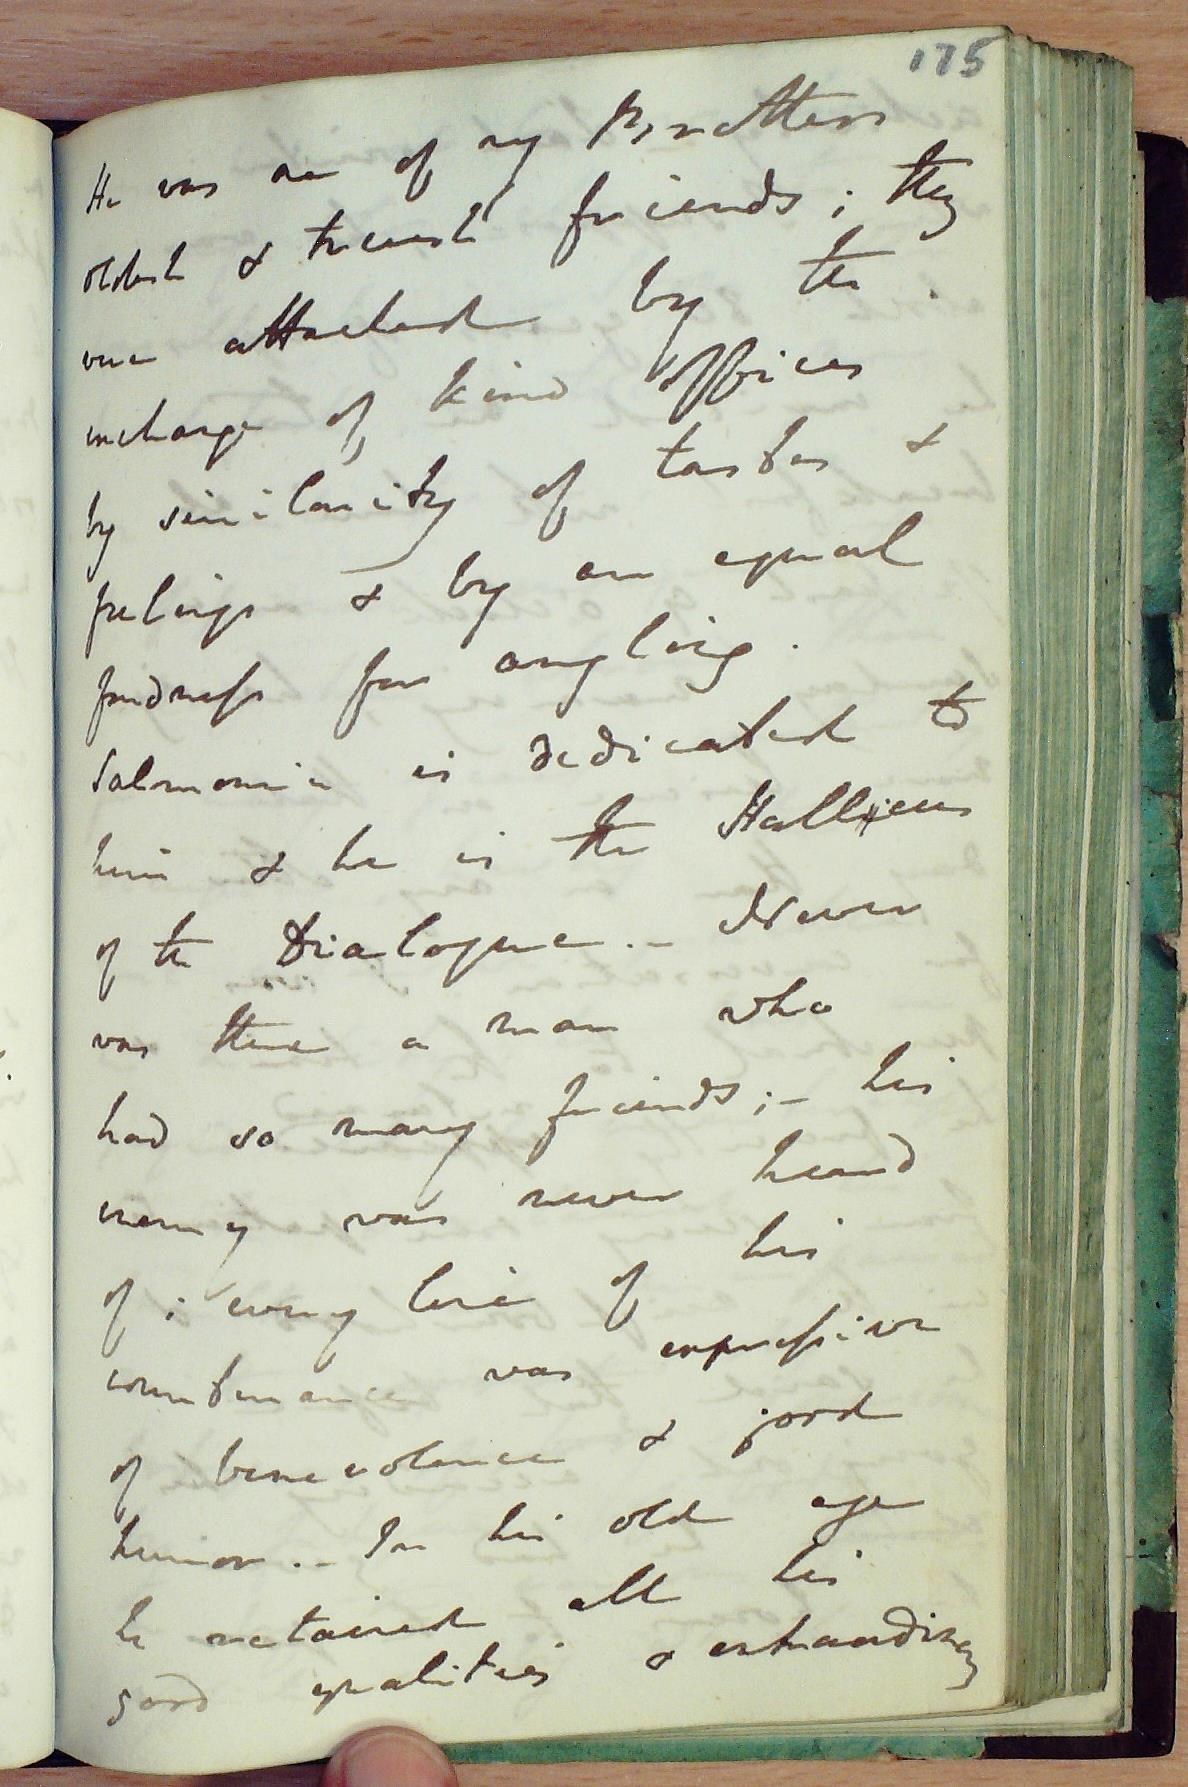 175
He was one of my Brothers
oldest & truest friends ; they
were attached by the
exchange of kind offices
by similarity of tastes &
feelings & by an equal
fondness for angling .
Salmonia is dedicated to
him & he is the Hallieus
of the Dialogue .– Never
was there a man who
had so many friends ;– his
enemy was never heard
of ; every line of his
countenance was expressive
of benevolence & good
humor .– In his old age
he retained all his
good qualities & extraordinary